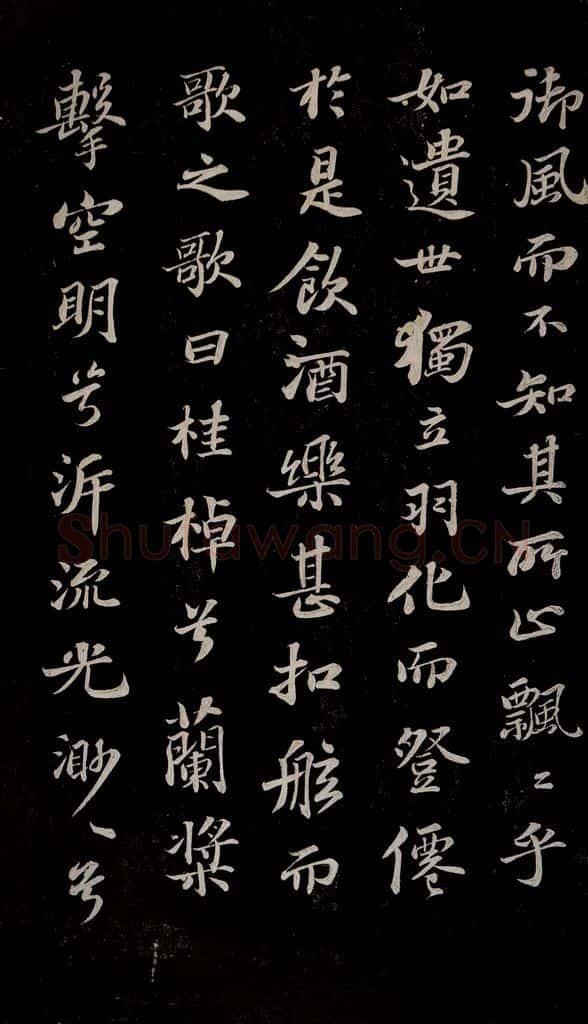 御風而不知其所止飄〻乎
如遺世獨立羽化而登僊
於是飲酒樂甚扣舷而
歌之歌曰桂棹兮蘭槳
擊空明兮泝流光渺〻兮
Shufawang.CN